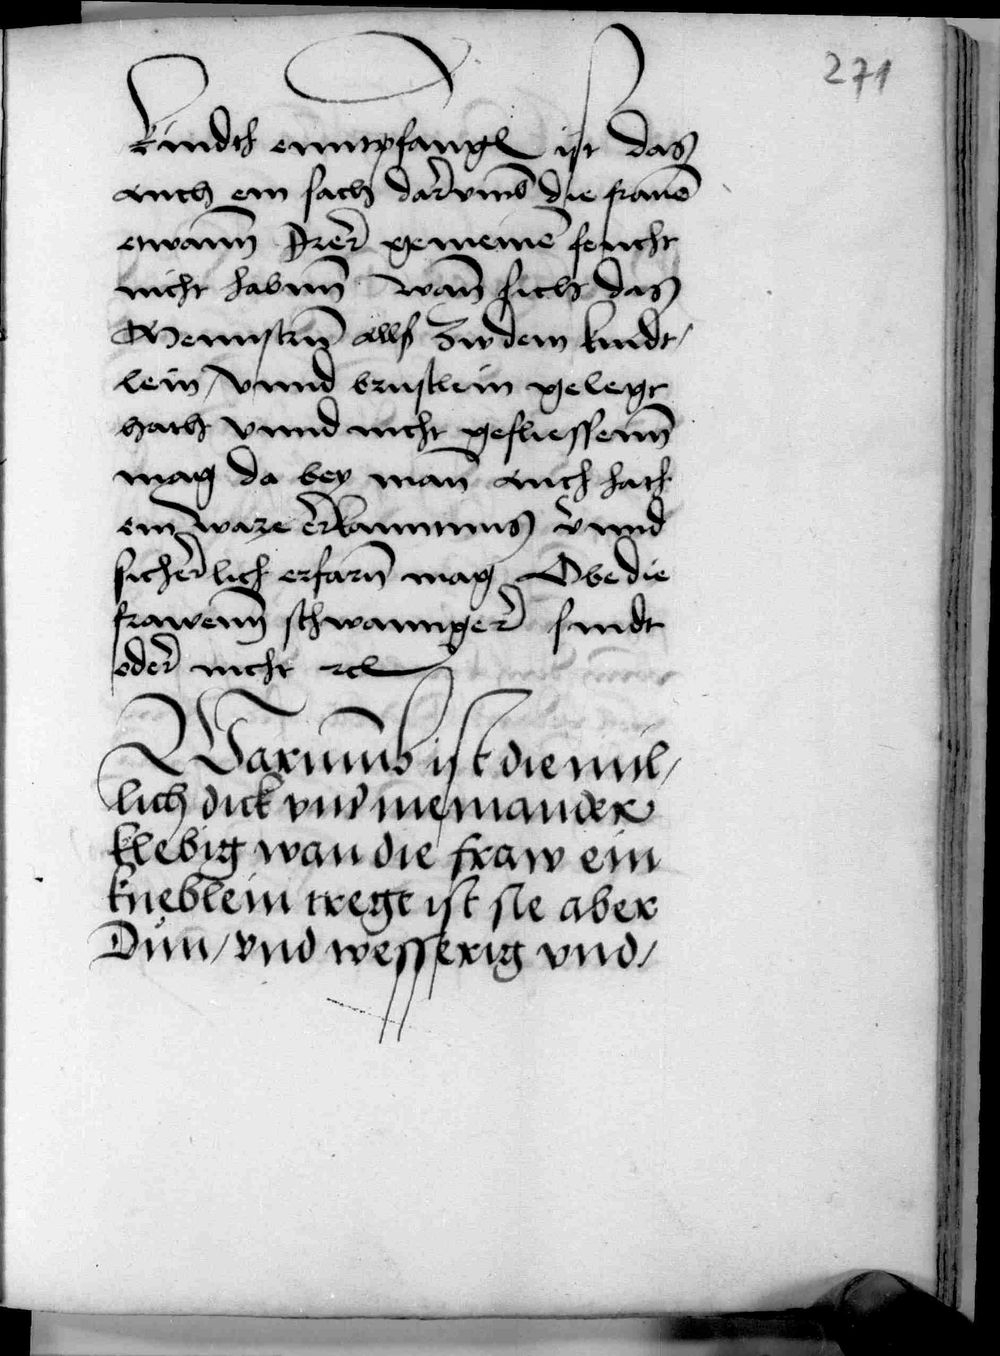 271
kindth enntpfangl ist das
auch ein sach darvmb die frauē
etwann Irer gemeinē feucht
nicht habnn wañ sich das
Mennstrū alls zw dem kindt/
lein / vnnd brustlein gelegt
hath vnnd nicht gefliessenn
mag da bey mañ auch hath
ein ware erkanntnus vnnd
sicherlich erfarn̄ mag Obe die
frawenn schwannger sindt
oder nicht rcl
Warumb ist die mil/
lich dick vnd
klebig wan die fraw ein
kneblein tregt ist sie aber
Dün / vnd wesserig vnd /